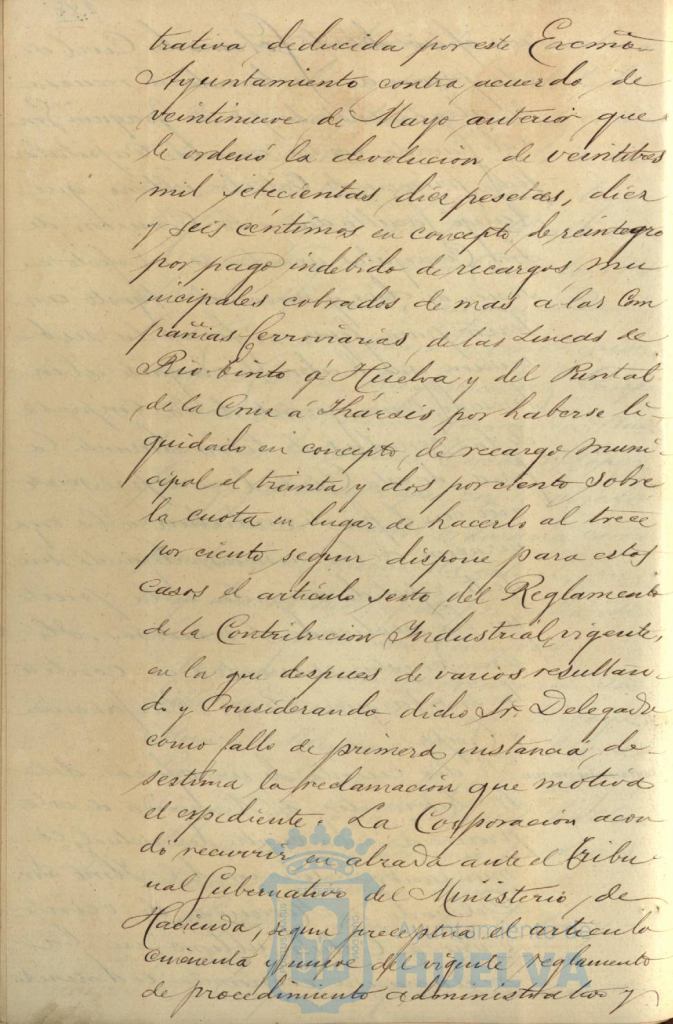 trativa deducida por este Excmo
Ayuntamiento contra acuerdo de
veintinueve de Mayo anterior que
le ordenó la devolucion de veintitres
mil setecientas diez pesetas, diez
y seis céntimos en concepto de reintegro
por pago indebido de recargos mu
nicipales cobrados de mas á las Com
pañias Ferroviarias de las Lineas de
Rio-tinto á Huelva y del Puntal
de la Cruz á Thársis por haberse li-
quidado en concepto de recargo muni-
cipal el treinta y dos por ciento sobre
la cuota en lugar de hacerlo al trece
por ciento segun dispone para estos
casos el artículo sesto del Reglamento
de la Contribucion Industrial vigente,
en la que despues de varios resultan-
do y Considerando dicho Sr. Delegado
como fallo de primera instancia, de-
sestima la reclamación que motiva
el espediente. La Corporación acor
dó recurrir en alzada ante el Tribu-
nal Gubernativo del Ministerio de
Hacienda, segun preceptua el articulo
cincuenta y nueve del vigente reglamento
de procedimiento administrativo y
Ayuntamiento de
HUELVA